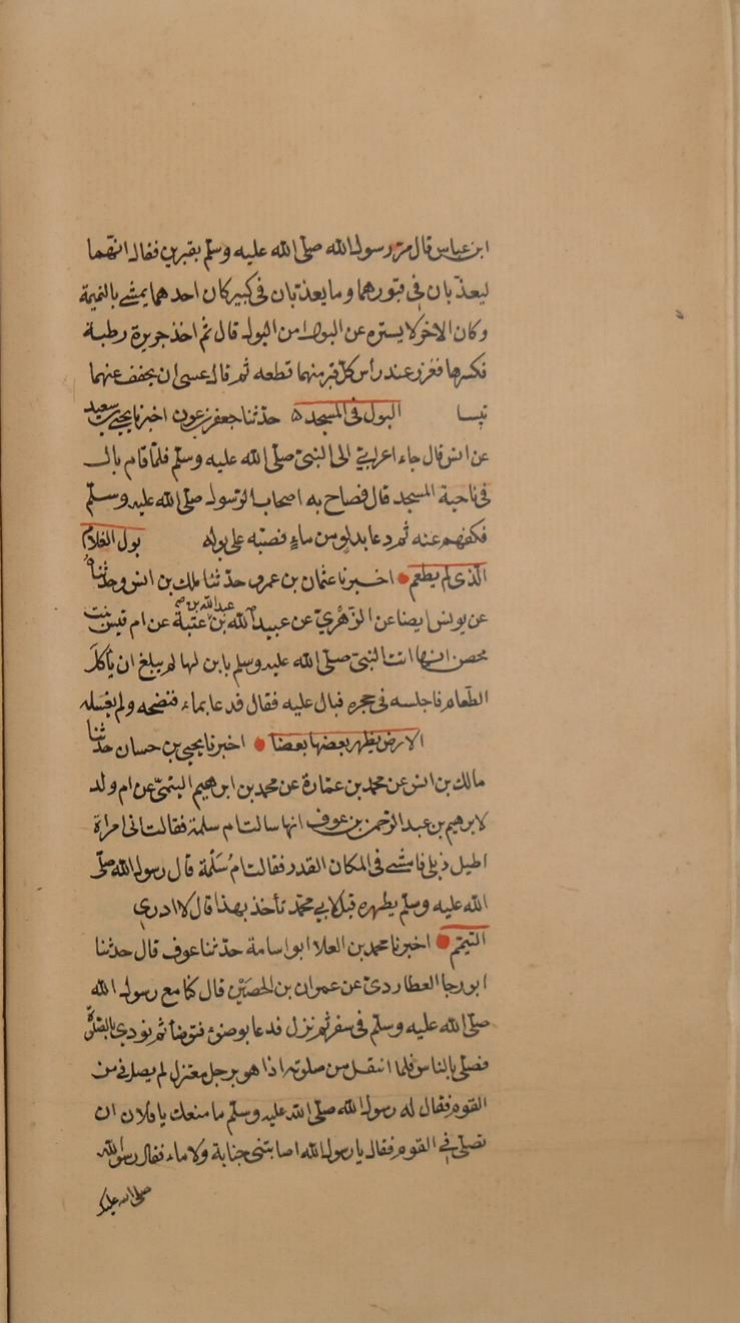 ابن عباس قال مرّ رسول الله صلى الله عليه وسلم بقبرين فقال انهما
ليعذّبان في قبورهما وما يعذّبان في كبير كان احدهما يمشي بالنميمة
وكان الاخر لا يستتره عن البول او من البول قال ثم اخذ جريدة رطبة
فكسرها فغرز عند رأس كلّ قبر منهما قطعه ثم قال عسى ان يخفف عنهما
تيبسا البول في المسجد حدّثنا جعفر بن عون اخبرنا يحيى بن سعيد
عن انس قال جاء اعرابيّ الى النبيّ صلى الله عليه وسلم فلمّا قام بال
في ناحية المسجد قال فصاح به اصحاب الرّسول صلى الله عليه وسلّم
فكفهم عنه ثم دعا بدلو من ماءٍ فصبّه على بوله بول الغلام
الّذي لم يطعم اخبرنا عثمان بن عمر حدّثنا ملك بن انس وحدّثناه
عن يونس ايضا عن الزّهريّ عن عبيد الله بن عبد الله بن عتبة صح عن ام قيس بنت
محصن انها اتت النبيّ صلّى الله عليه وسلم بابن لها لم يبلغ ان يأكل
الطّعام فاجلسه في حجره فبال عليه فقال فدعا بماء فنضحه ولم يغسله
الارض يطهر بعضها بعضا اخبرنا يحيى بن حسان حدّثنا
مالك بن انس عن محمد بن عمّارة عن محمد بن ابرهيم التيميّ عن ام ولد
لابرهيم بن عبد الرّحمن بن عوف انها سالت ام سلمة فقالت اني امراة
اطيل ذيلي فامشي في المكان القذر فقالت امُ سَلمة قال رسول الله صلّى
الله عليه وسلم يطهره قيل لابي محمّد تأخذ بهذا قال لا ادري
التيمّم اخبرنا محمد بن العلا ابو اسامة حدّثنا عوف قال حدثنا
ابو رجا العطارديّ عن عمران بن الحصَين قال كنا مع رسول الله
صلّى الله عليه وسلّم في سفر ثم نزل فدعا بوضوء فتوضأ ثم نودي بالصّلاة
فصلّى بالناس فلما انفتل من صلوته اذا هو برجل معتزل لم يصل في من
القوم فقال له رسول الله صلى الله عليه وسلّم ما منعك يا فلان ان
تصلّي في القوم فقال يا رسول الله اصابتني جنابة ولا ماء فقال رسول الله
صلى الله عليه